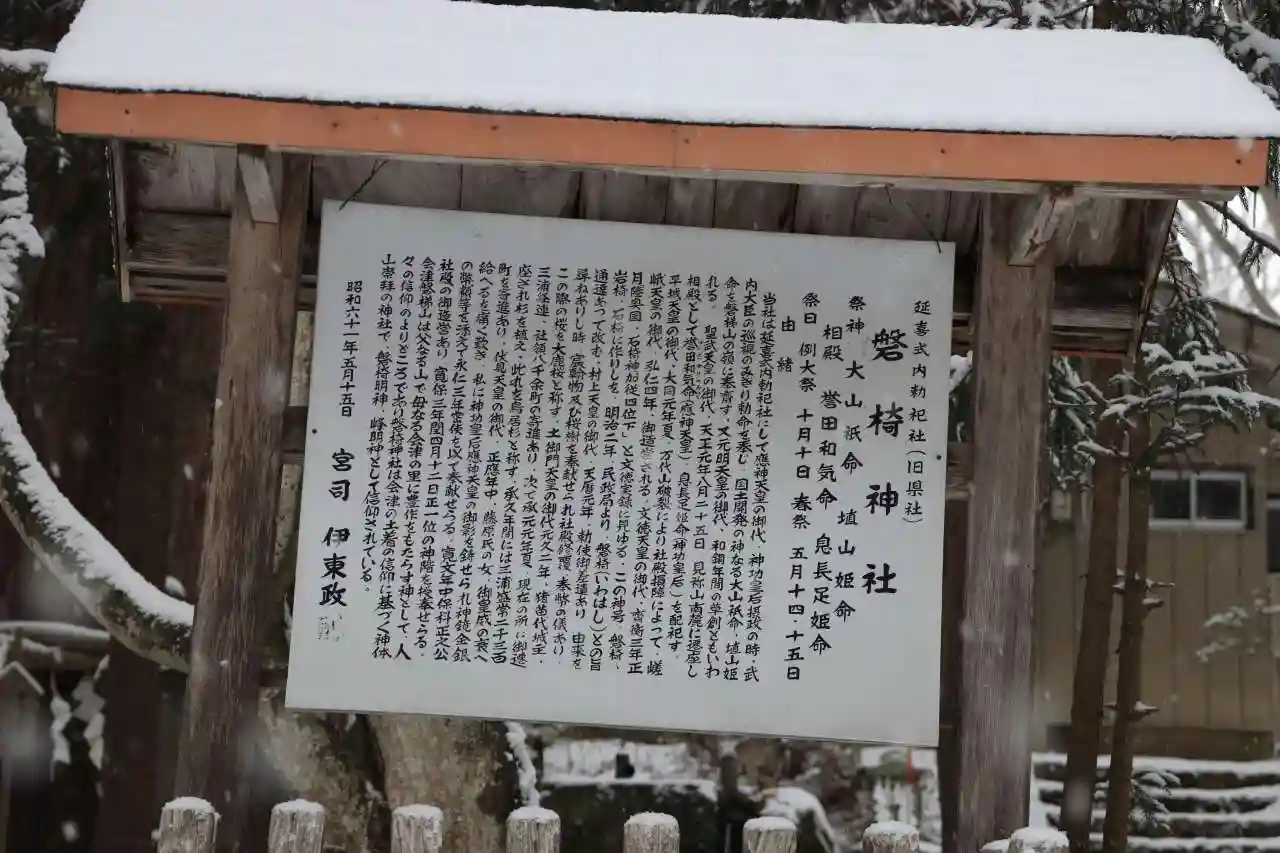 延喜式内勅祀社(旧県社)
磐椅神社
祭神 大山祇命 埴山姫命
相殿 誉田和気命 息長足姫命
祭日 例大祭 十月十日 春祭 五月十四・十五日
由緒
当社は延喜式内勅祀社にして應神天皇の御代、神功皇后摂政の時、武
内大臣の巡視のみぎり勅命を奉じ、国土開発の神なる大山祇命、埴山姫
命を磐梯山の嶺に奉斎す、又元明天皇の御代、和銅年間の草創ともいわ
れる。聖武天皇の御代、天平元年八月二十五日、見祢山南麓に遷座し
相殿として誉田和気命(應神天皇)、息長足姫命(神功皇后)を配祀す。
平城天皇の御代、大同元年夏、万代山破裂により社殿損障によって、嵯
峨天皇の御代、弘仁四年、御造営される。文徳天皇の御代、斉衡三年正
月陸奥国、石椅神加従四位下」と文徳実録に見ゆる。この神号、磐椅、
岩椅、石椅に作りしを、明治二年、民政局より、磐椅(いわはし)との旨
通達あって改む。村上天皇の御代、天暦元年、勅使御差遣あり、由来を
尋ねありし時、宝物及び桜樹を奉献せられ社殿修覆、奉幣の儀あり、
この際の桜を大鹿桜と称す。土御門天皇の御代元久二年、猪苗代城主、
三浦経連、社領八千余町の寄進あり、次で承元元年夏、現在の所に御遷
座され杉を植え、此れを鳥居杉と称す。承久年間には三浦盛常二千三百
町を寄進あり、伏見天皇の御代、正應年中、藤原氏の女、御皇威の衰へ
給へるを痛く歎き、私に神功皇后應神天皇の御影を鋳せられ神鏡金銀
の幣類等で添えて永仁三年堂使を以て奉献せらる。寛文年中保科正之公
社殿の御造営あり、寛保三年閏四月十二日正一位の神階を授奉せらる。
会津磐梯山は父なる山で母なる会津の里に豊作をもたらす神として、人
々の信仰のよりどころであり磐椅神社は会津の土着の信仰に基づく神体
山崇拝の神社で、磐椅明神、峰明神として信仰されている。
昭和六十一年五月十五日
宮司 伊東政